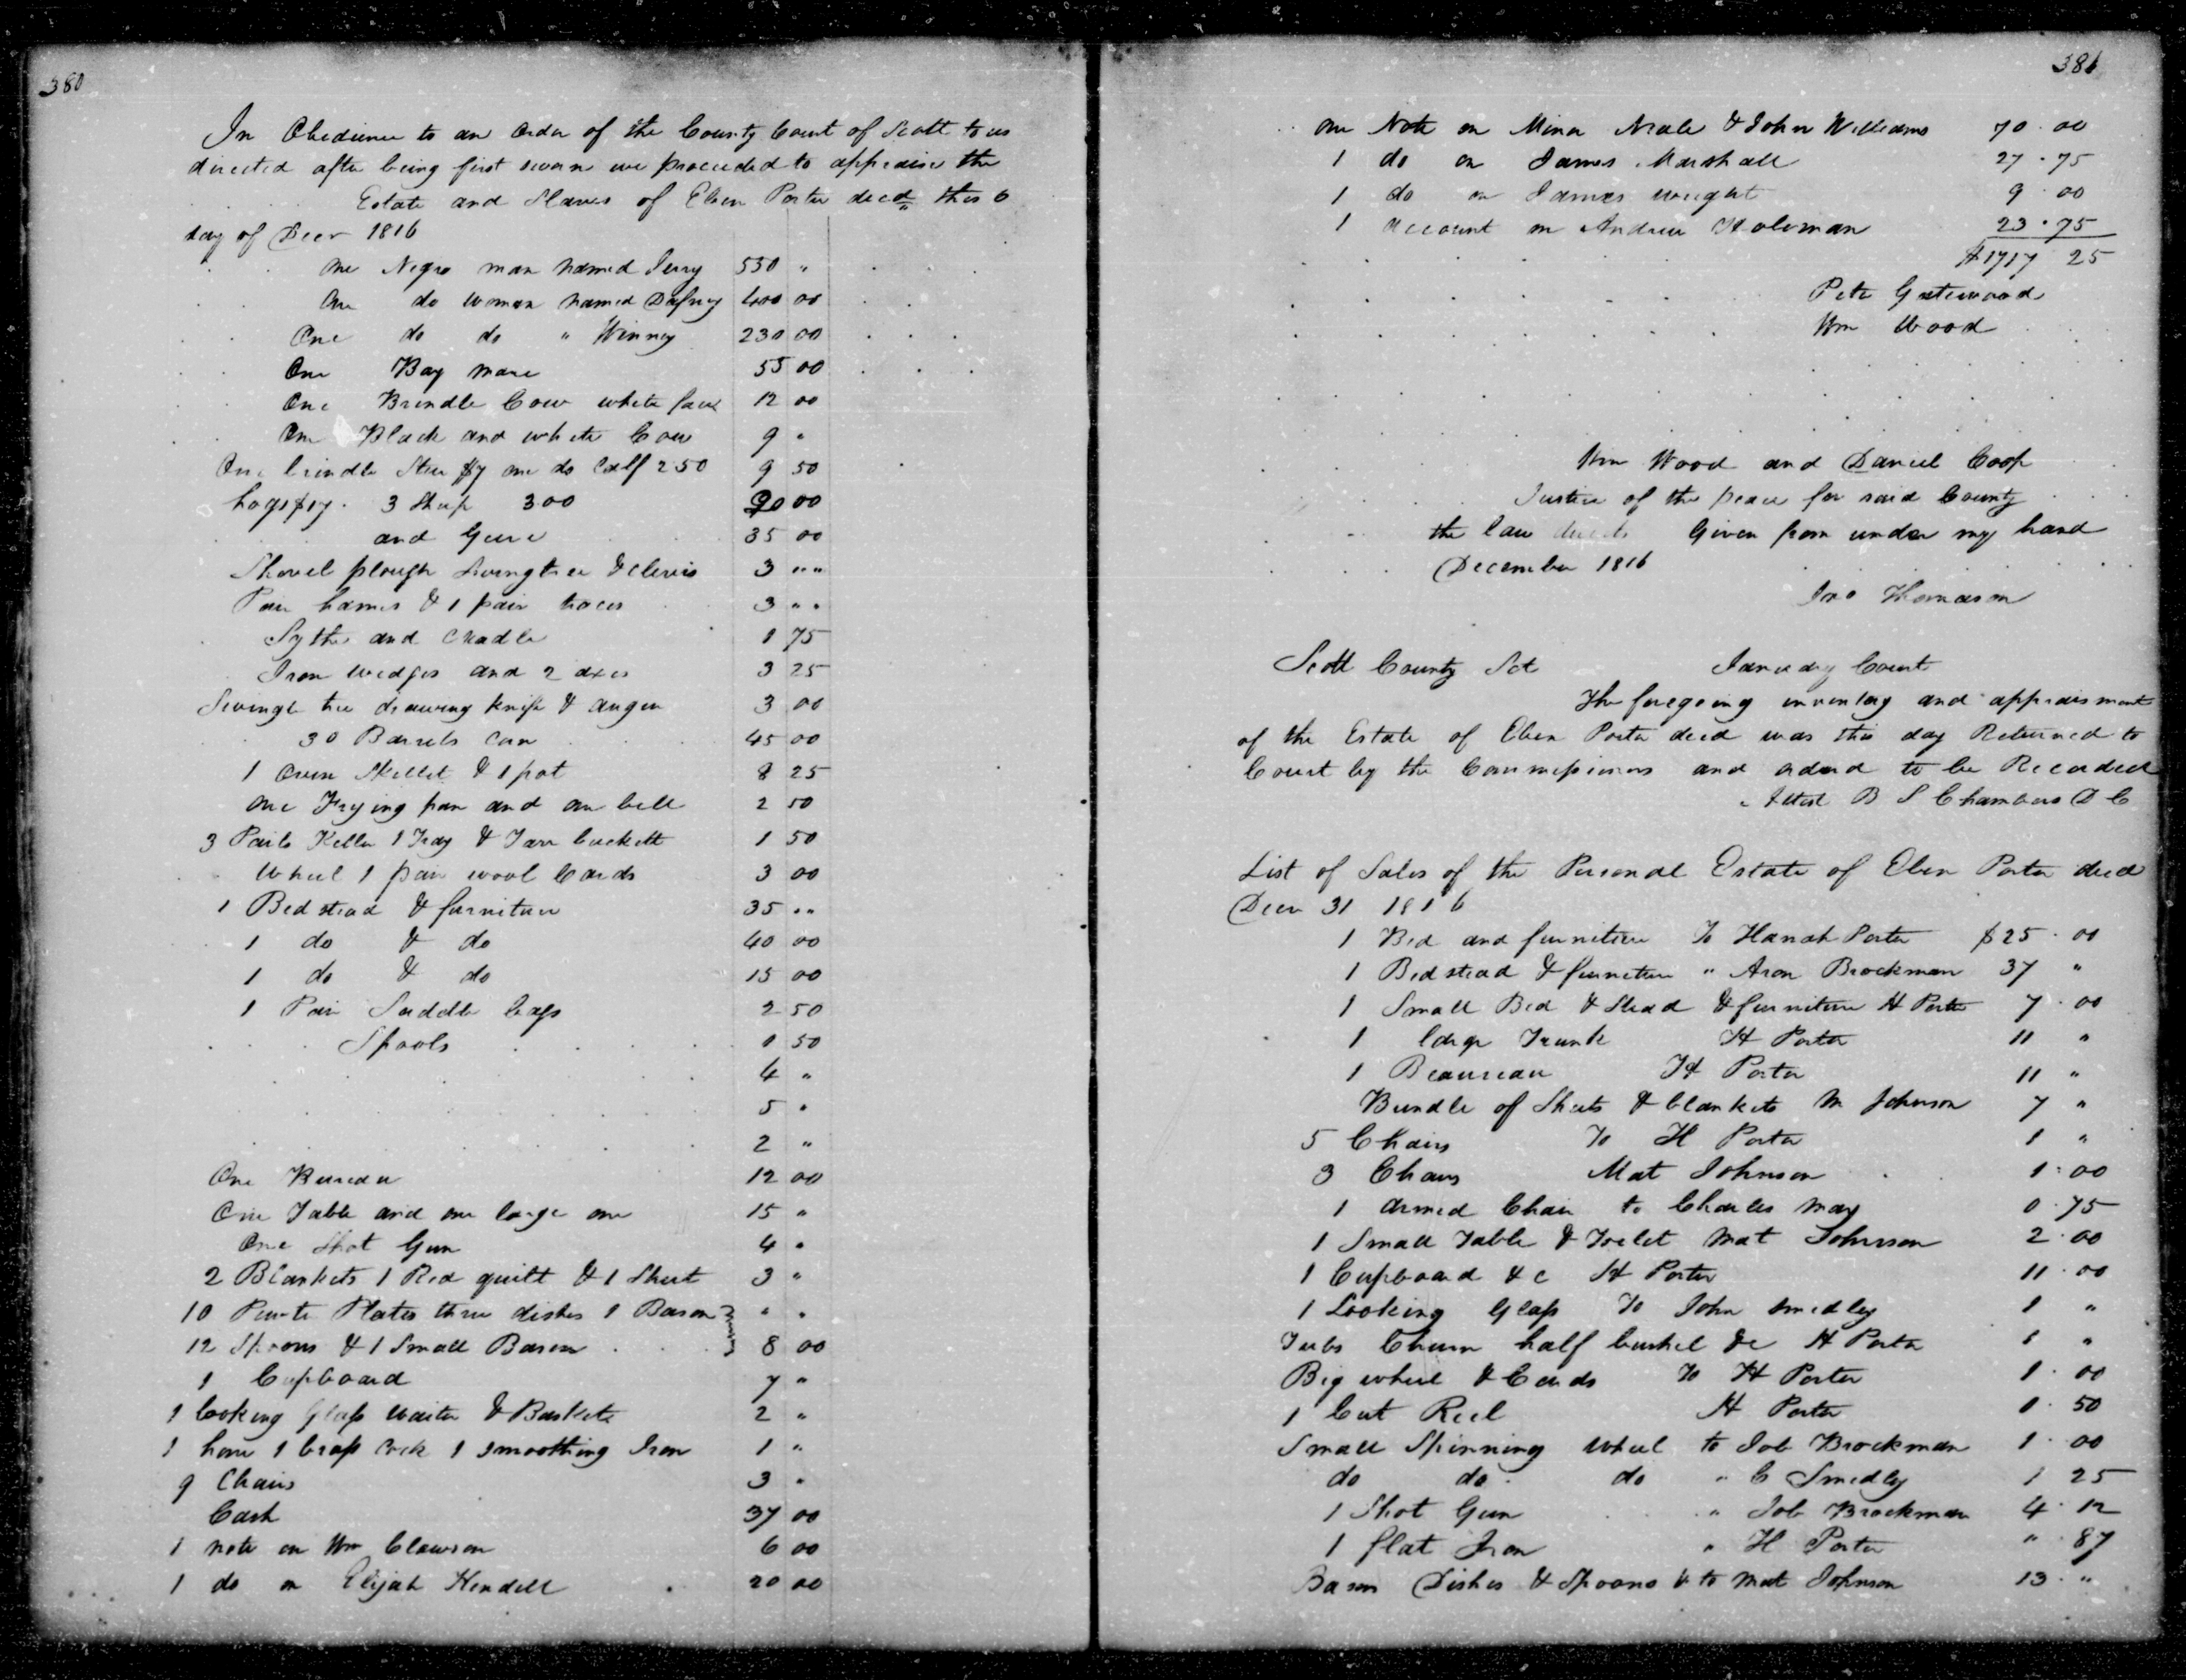 380
In Obedience to an order of the County Court of Scott to us
directed after being first sworn we proceeded to appraise the
Estate and Slaves of Eben Porter decd this 6
day of Decr 1816
One Negro man named Jerry 550 "
One do woman named Dafney 400 00
One do do " Winney 230 00
One Bay mare 55 00
One Brindle Cow white face 12 00
One Black and white Cow 9 "
One brindle Steer $7 one do Calf 250 9 50
hogs 3 Sheep 300 90 00
and Geere 35 00
Shovel plough Swingtree & clevis 3 " "
Pair hames & 1 pair traces 3 " "
Sythe and Cradle 1 75
Iron wedges and 2 axes 3 25
Swingle tree drawing knife & auger 3 00
30 Barrels Corn 45 00
1 oven Skillet & 1 pot 8 25
One Frying pan and one bell 2 50
3 Pails Keller 1 Tray & Tarr buckett 1 50
Wheel 1 pair wool Cards 3 00
1 Bedstead & furniture 35 " "
1 do & do 40 00
1 do & do 15 00
1 Pair Saddle bags 2 50
Spools 1 50
4 "
5 "
2 "
One Bureau 12 00
One Table and one large one 15 "
One Shot Gun 4 "
2 Blankets 1 Red quilt & 1 Sheet 3 "
10 Pewter Plates three dishes 1 Bason } " "
12 Spoons & 1 Small Bason } 8 00
1 Cupboard 7 "
1 looking Glass waiter & Baskets 2 "
1 hone 1 brass Cock 1 smoothing Iron 1 "
9 Chairs 3 "
Cash 37 00
1 note on Wm Clawson 6 00
1 do on Elijah Kendell 20 00
381
One Note on Minor Neale & John Williams 70 . 00
1 do on James Marshall 27 . 75
1 do on James wright 9 00
1 account on Andrew Holeman 23 . 75
$1717 25
Pete Gatewood
Wm Wood
Wm Wood and Daniel Coop
Justice of the peace for said County
the law directs Given from under my hand
December 1816
Jno Thomason
Scott County Sct January Court
The foregoing inventory and appraisment
of the Estate of Eben Porter decd was this day Returned to
Court by the Commissioners and orderd to be Recorded
Attest B S Chambers D C
List of Sales of the Personal Estate of Eben Porter decd
Decr 31 1816
1 Bed and furniture To Hanah Porter $25 . 00
1 Bedstead & furniture " Aron Brockman 37 "
1 Small Bed & Stead & furniture H Porter 7 . 00
1 large Trunk H Porter 11 "
1 Beaureau H Porter 11 "
Bundle of Sheets & blankets M Johnson 7 "
5 Chairs To H Porter 1 "
3 Chairs Mat Johnson 1 . 00
1 armed Chair to Charles May 0 . 75
1 Small Table & Toelet Mat Johnson 2 . 00
1 Cupboard &c H Porter 11 . 00
1 Looking Glass To John Smedley 1 "
Tubs Churn half bushel &c H Porter 1 "
Big wheel & Cards To H Porter 1 . 00
1 Cut Reel H Porter 1 . 50
Small Spinning wheel to Job Brockman 1 . 00
do do do " C Smedley 1 25
1 Shot Gun " Job Brockman 4 . 12
1 flat Iron " H Porter " . 87
Bason Dishes & Spoons & to Mat Johnson 13 . "